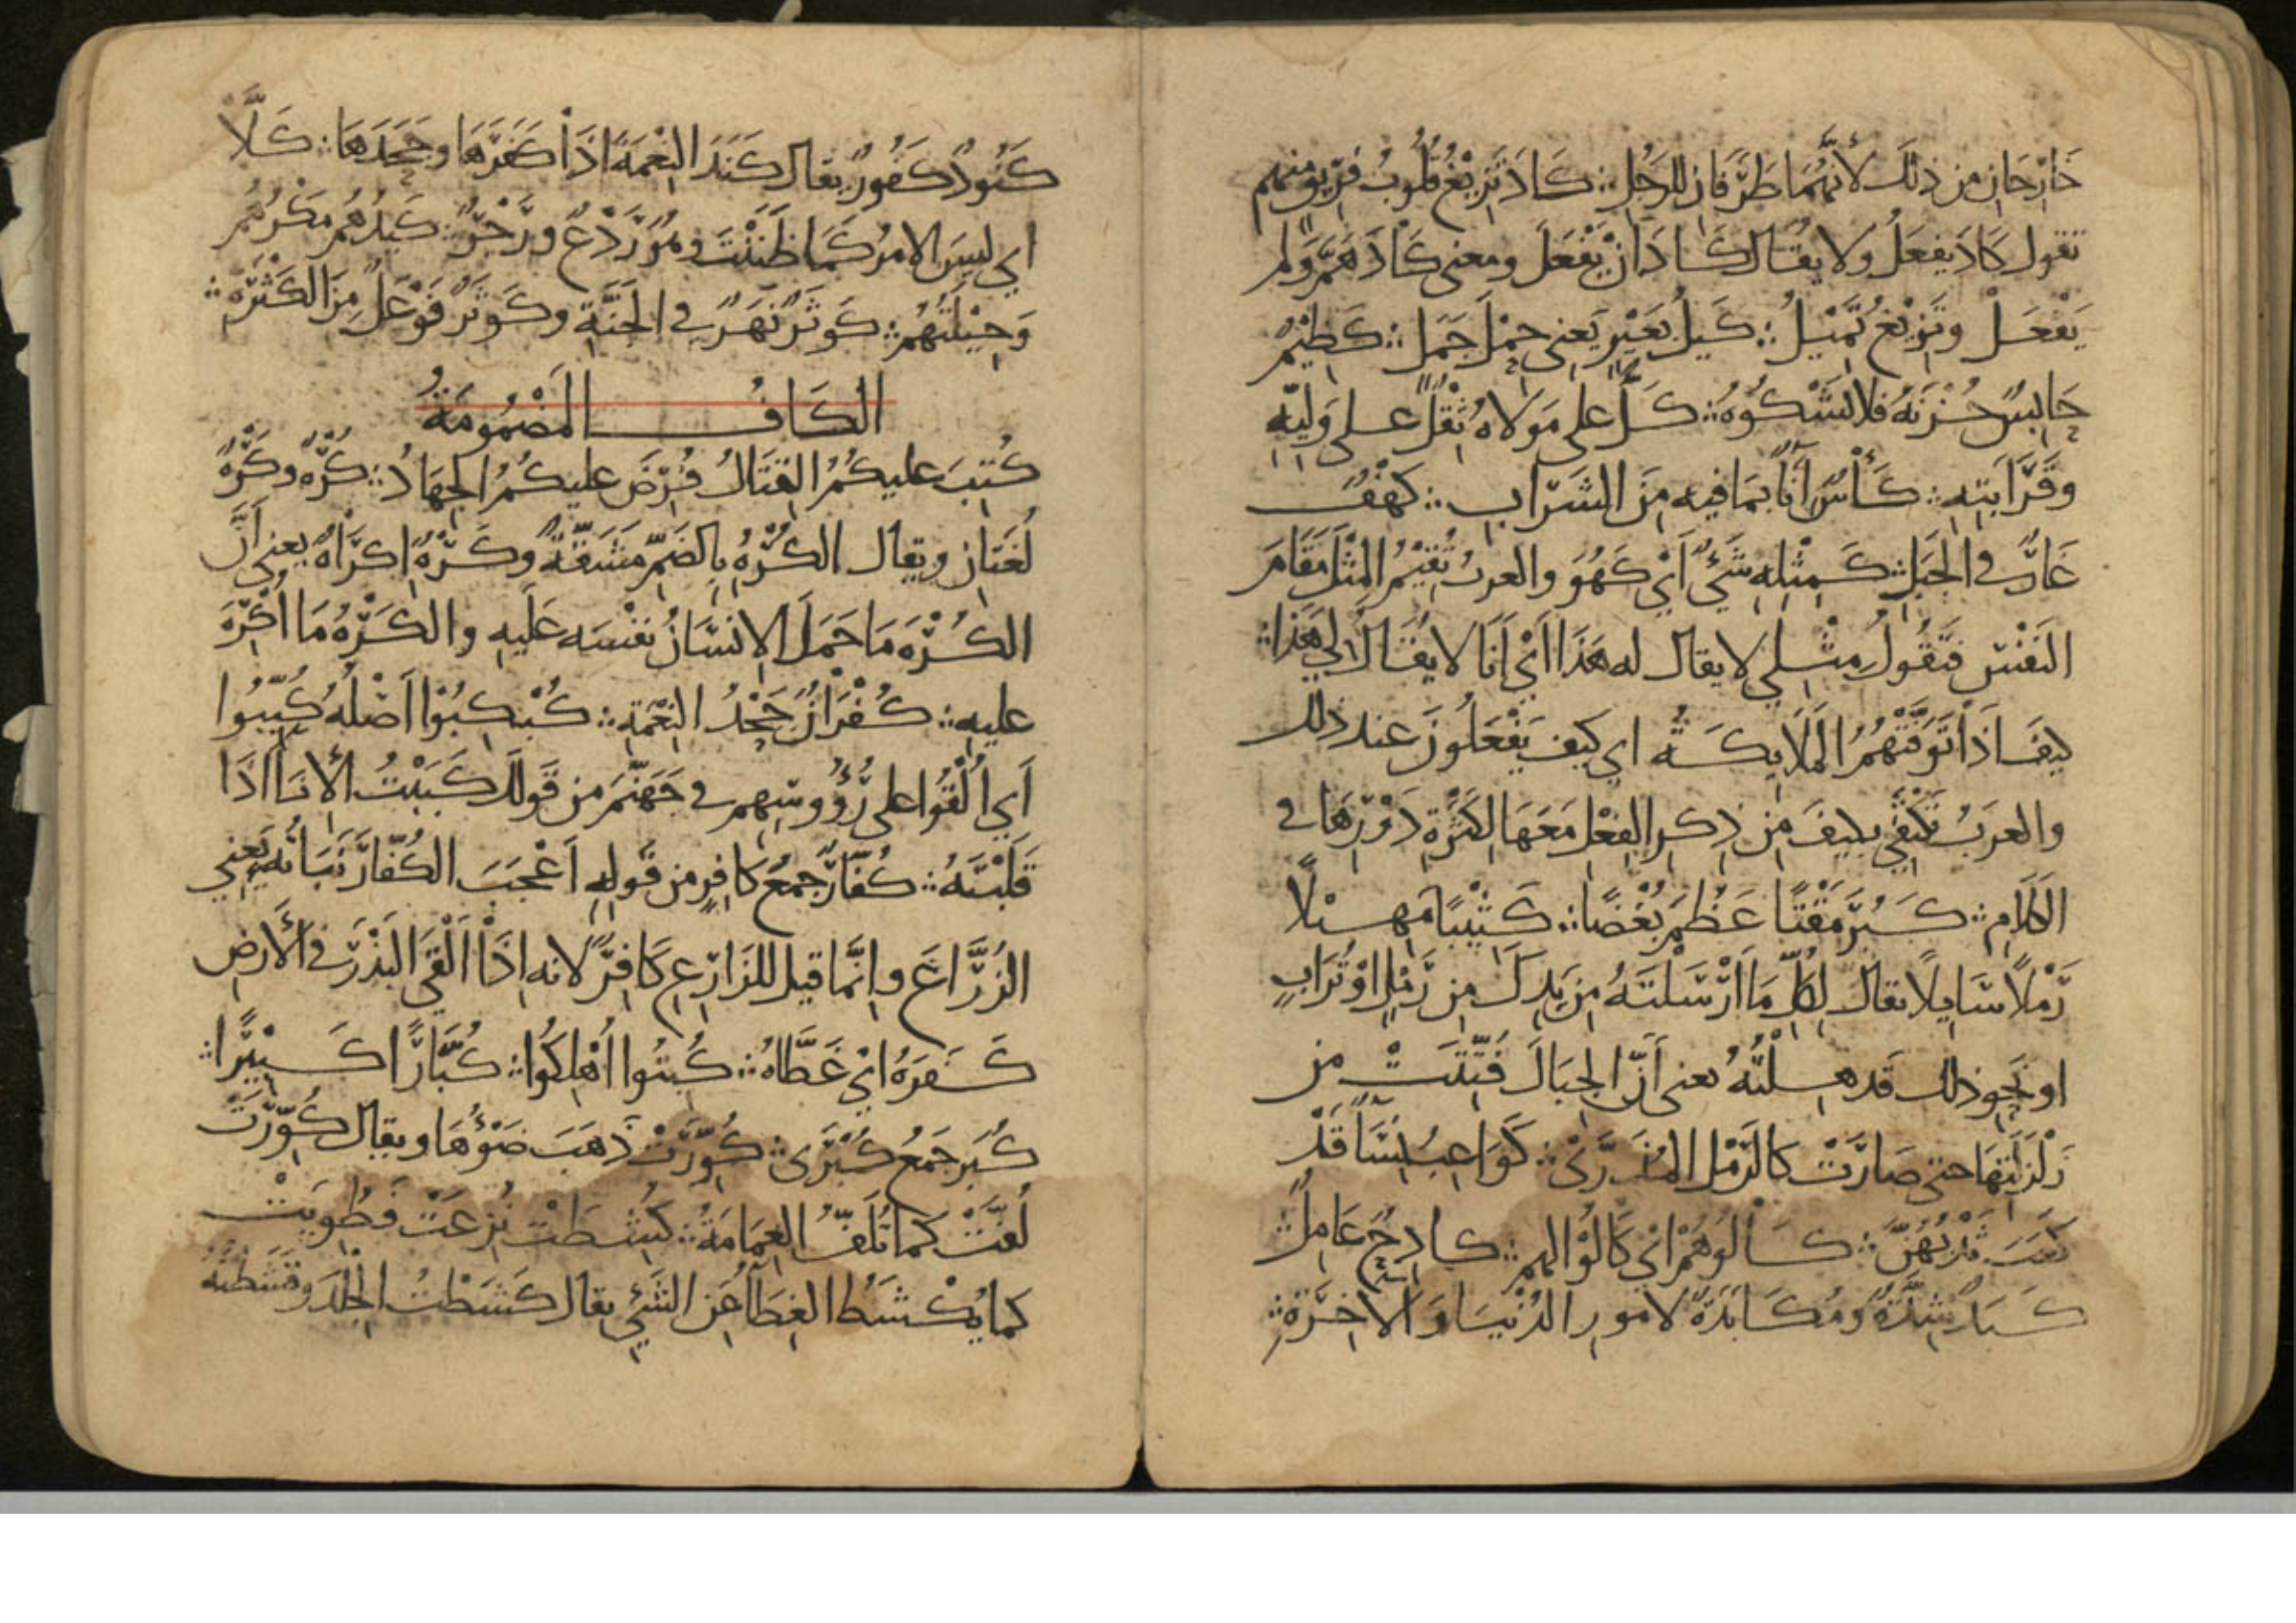 خَارِجَانِ من ذلك لأنَّهُمَا طَرَفَانِ للرَجُلِ ∴ كَادَ تَزِيْغُ قُلُوبُ فَرِيقٍ منهم
تقول كَادَ يفعَلُ ولا يقُال كَادَ أنْ يَفْعَلَ ومعنى كَادَ هَمَّ وَلم
يَفْعَلْ وتَزِيْغُ تَمِيْلُ ∴ كَيلُ بَعِيْرٍ يَعنِى حِمْلَ جَمَل ∴ كَظِيْمٌ
حَابِسٌ حُزْنَهُ فلا يَشْكُوْهُ ∴ كَلٌّ على مَولاهُ ثِقْلٌ على وَلِيّهِ
وقَرَابَتِهِ ∴ كَأْسٌ آنَآ بمَا فيه مِنَ الشَرَابِ ∴ كَهْفٌ
غَارٌ في الجَبَلِ ∴ كَمِثْلِهِ شَيْءٌ أيْ كَهُوَ والعربُ تُقِيْمُ المِثْلَ مَقَامَ
النَفْسِ فَتَقُولُ مِثْلِي لا يقال له هَذَا أيْ أنَا لا يُقَالُ لِي هَذَا ∴
كيفَ اذَا تَوَفَّتْهُمُ الْمَلَايِكَةُ اي كَيفَ يَفْعَلُونَ عند ذلك
والعَرَبُ تَكْتَفِي بكيفَ مِن ذِكرِ الفِعْلِ مَعَهَا لِكَثْرَةِ دَوْرِهَا في
الكَلَامِ ∴ كَبُرَ مَقْتًا عَظُمَ بُغْضًا ∴ كَثِيْبًا مَهِيلًا
رَمْلًا سَايِلًا يقَالُ لِكُلِّ مَا أرْسَلتَهُ مِن يَدِكَ مِن رَمْلٍ اوْ تُرَابٍ
او نَحوِ ذلك قَد هِلْتَهُ يعنى أنّ الجِبَالَ فُتِّتَتْ من
زَلْزَلَتِهَا حتى صَارَتْ كالرَمْلِ المُذَرَّى ∴ كَوَاعِبُ نِسَآ قَدْ
كَعَبَ ثُدِيُّهُنَّ ∴ كَالُوهُمْ أيْ كَالُوْا لهم ∴ كَادِحٌ عَامِلٌ ∴
كَبَد شِدَّةٌ ومُكَابَدَةٌ لامورِ الدُنْيَا وَالاخِرَةِ ∴
كَنُودٌ كَفُورٌ يقال كَنَدَ النِعْمَةَ اذَا كَفَرَهَا وجَحَدَهَا ∴ كَلَّا
اي ليسَ الامرُ كَمَا ظَنَنْتَ وهُوَ رَدْعٌ وزَجْرٌ ∴ كَيدُهُمْ مَكْرُهُمْ
وَحِيْلَتُهُمْ ∴ كَوثَرٌ نَهَرٌ في الجَنَّةِ وكَوثَرٌ فَوْعَلٌ مِنَ الكَثْرَةِ ∴
الكَافُ المَضْمُومَةُ
كُتِبَ عليكُمُ القِتَالُ فُرِضَ عليكُمُ الجِهَادُ ∴ كُرْهٌ وكَرْهٌ
لُغَتَانِ ويقال الكُرْهُ بِالضَمِّ مَشَقَّةٌ وكَرْهٌ اِكرَاهٌ يعني أنَّ
الكُرْهَ مَا حَمَلَ الإنسَانُ نفْسَه عَلَيهِ والكَرْهُ مَا أُكْرِهَ
عليهِ ∴ كُفْرَانٌ جَحْدُ النِعْمَةِ ∴ كُبْكِبُوْا أصْلُهُ كُبِّبُوا
أي أُلْقُوا على رُؤُوسِهِم في جَهَنَّمَ من قَولك كَبَبْتُ الأنَآ اذَا
قَلَبْتَهُ ∴ كُفَّارٌ جَمعُ كَافِرٍ من قَولِهِ أعْجَبَ الكُفّارَ نَبَاتُهُ يَعنِي
الزُرَّاعَ وإنَّمَا قيل للزَارِعِ كَافِرٌ لانه إذَا ألْقَى البَذْرَ في الأرضِ
كَفَرَهُ أيْ غَطَّاهُ ∴ كُبِتُوا أُهْلِكُوا ∴ كُبَّارًا كَبِيْرًا ∴
كُبَر جَمعُ كُبْرَى ∴ كُوِّرَتْ ذَهَبَ ضَوْءُهَا ويقال كُوِّرَتْ
لُفَّتْ كما تُلَفُّ العِمَامَةُ ∴ كُشِطَتْ نُزِعَتْ فَطُوِيَتْ
كما يُكْشَطُ الغِطَآ عَنِ الشَيْءِ يقال كَشَطْتُ الجِلْدَ وقَشَطْتُهُ